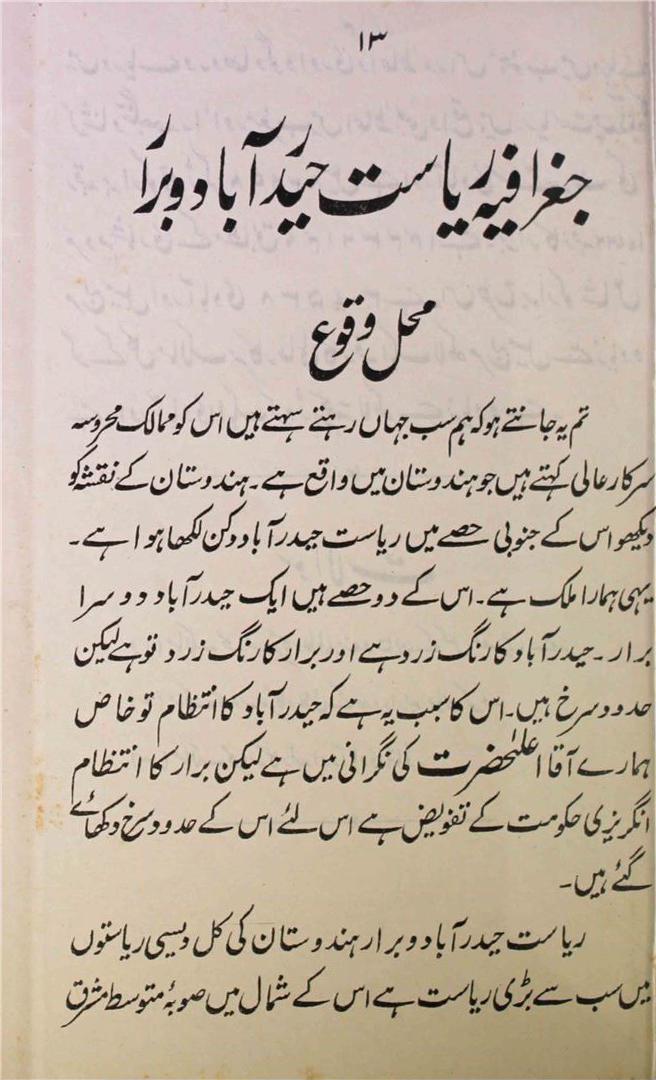 ۱۳
جغرافیہ ریاست حیدرآباد و برار
محل وقوع
تم یہ جانتے ہو کہ ہم سب جہاں رہتے سہتے ہیں اس کو ممالک محروسہ
سرکار عالی کہتے ہیں جو ہندوستان میں واقع ہے۔ ہندوستان کے نقشہ کو
دیکھو اس کے جنوبی حصے میں ریاست حیدرآباد دکن لکھا ہوا ہے۔
یہی ہمارا ملک ہے۔ اس کے دو حصے ہیں ایک حیدرآباد دوسرا
برار۔ حیدرآباد کا رنگ زرد ہے اور برار کا رنگ زرد تو ہے لیکن
حدود سرخ ہیں۔ اس کا سبب یہ ہے کہ حیدرآباد کا انتظام تو خاص
ہمارے آقا اعلیٰحضرت کی نگرانی میں ہے لیکن برار کا انتظام
انگریزی حکومت کے تفویض ہے اس لئے اس کے حدود سرخ دکھائے
گئے ہیں۔
ریاست حیدرآباد و برار ہندوستان کی کل دیسی ریاستوں
میں سب سے بڑی ریاست ہے اس کے شمال میں صوبۂ متوسط مشرق